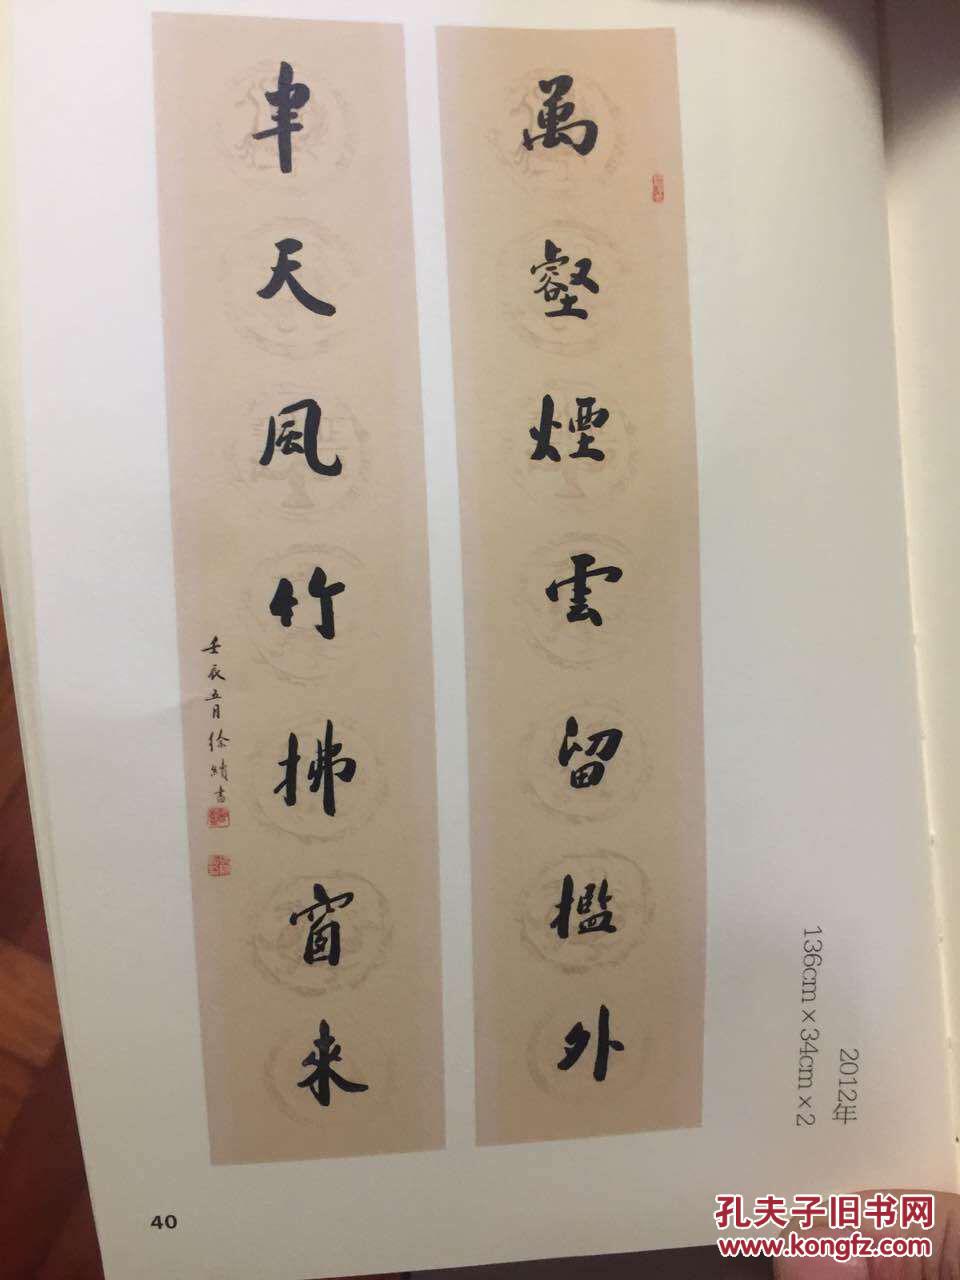 萬壑煙雲留檻外
半天風竹拂窗來
壬辰五月徐靖書
2012年
136cm×34cm×2
40
孔夫子旧书网
www.kongfz.com